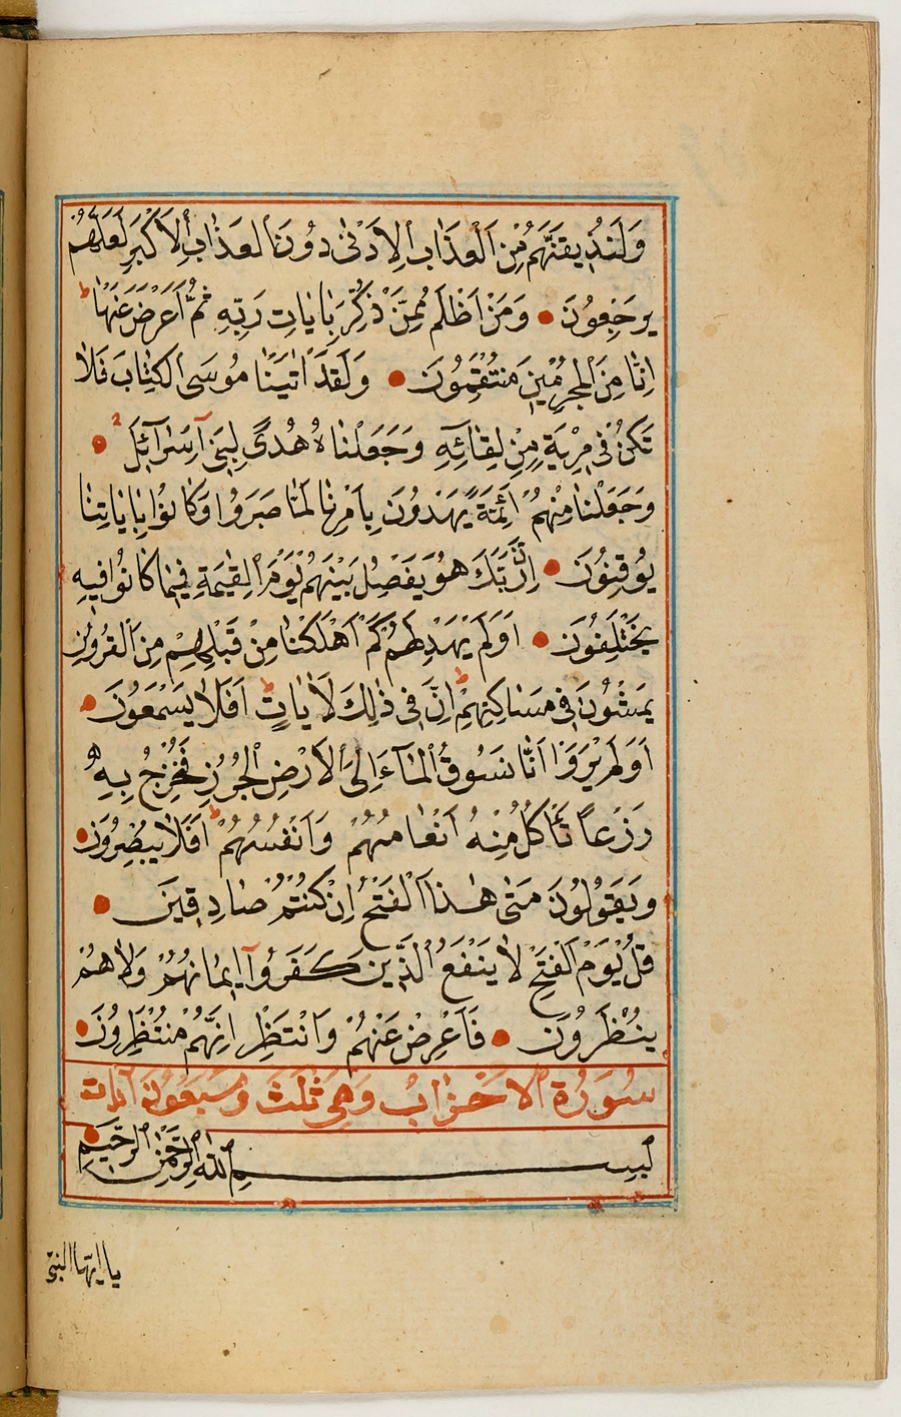 وَلَنُذِيقَنَّهُمْ مِنَ الْعَذَابِ الْاَدْنٰى دُونَ الْعَذَابِ الْاَكْبَرِ لَعَلَّهُمْ
يَرْجِعُونَ ● وَمَنْ اَظْلَمُ مِمَّنْ ذُكِّرَ بِاٰيَاتِ رَبِّهِ ثُمَّ اَعْرَضَ عَنْهَا ط
اِنَّا مِنَ الْمُجْرِمِينَ مُنْتَقِمُونَ ● وَلَقَدْ اٰتَيْنَا مُوسَى الْكِتَابَ فَلَا
تَكُنْ فِي مِرْيَةٍ مِنْ لِقَائِهِ وَجَعَلْنَاهُ هُدًى لِبَنِي اِسْرَآئِلَ ●
وَجَعَلْنَا مِنْهُمْ اَئِمَّةً يَهْدُونَ بِاَمْرِنَا لَمَّا صَبَرُوا وَكَانُوا بِاٰيَاتِنَا
يُوقِنُونَ ● اِنَّ رَبَّكَ هُوَ يَفْصِلُ بَيْنَهُمْ يَوْمَ الْقِيٰمَةِ فِيمَا كَانُوا فِيهِ
يَخْتَلِفُونَ ● اَوَلَمْ يَهْدِ لَهُمْ كَمْ اَهْلَكْنَا مِنْ قَبْلِهِمْ مِنَ الْقُرُونِ
يَمْشُونَ فِي مَسَاكِنِهِمْ ط اِنَّ فِي ذٰلِكَ لَاٰيَاتٍ ط اَفَلَا يَسْمَعُونَ ●
اَوَلَمْ يَرَوْا اَنَّا نَسُوقُ الْمَآءَ اِلَى الْاَرْضِ الْجُرُزِ فَنُخْرِجُ بِهِ
زَرْعًا تَأْكُلُ مِنْهُ اَنْعَامُهُمْ وَاَنْفُسُهُمْ ط اَفَلَا يُبْصِرُونَ ●
وَيَقُولُونَ مَتٰى هٰذَا الْفَتْحُ اِنْ كُنْتُمْ صَادِقِينَ ●
قُلْ يَوْمَ الْفَتْحِ لَا يَنْفَعُ الَّذِينَ كَفَرُوآ اِيمَانُهُمْ وَلَا هُمْ
يُنْظَرُونَ ● فَاَعْرِضْ عَنْهُمْ وَانْتَظِرْ اِنَّهُمْ مُنْتَظِرُونَ ●
سُورَةُ الْاَحْزَابِ وَهِيَ ثَلٰثَ وَسَبْعُونَ اٰيَات
بِسْمِ اللّٰهِ الرَّحْمٰنِ الرَّحِيمِ ●
يا ايّها النبيّ